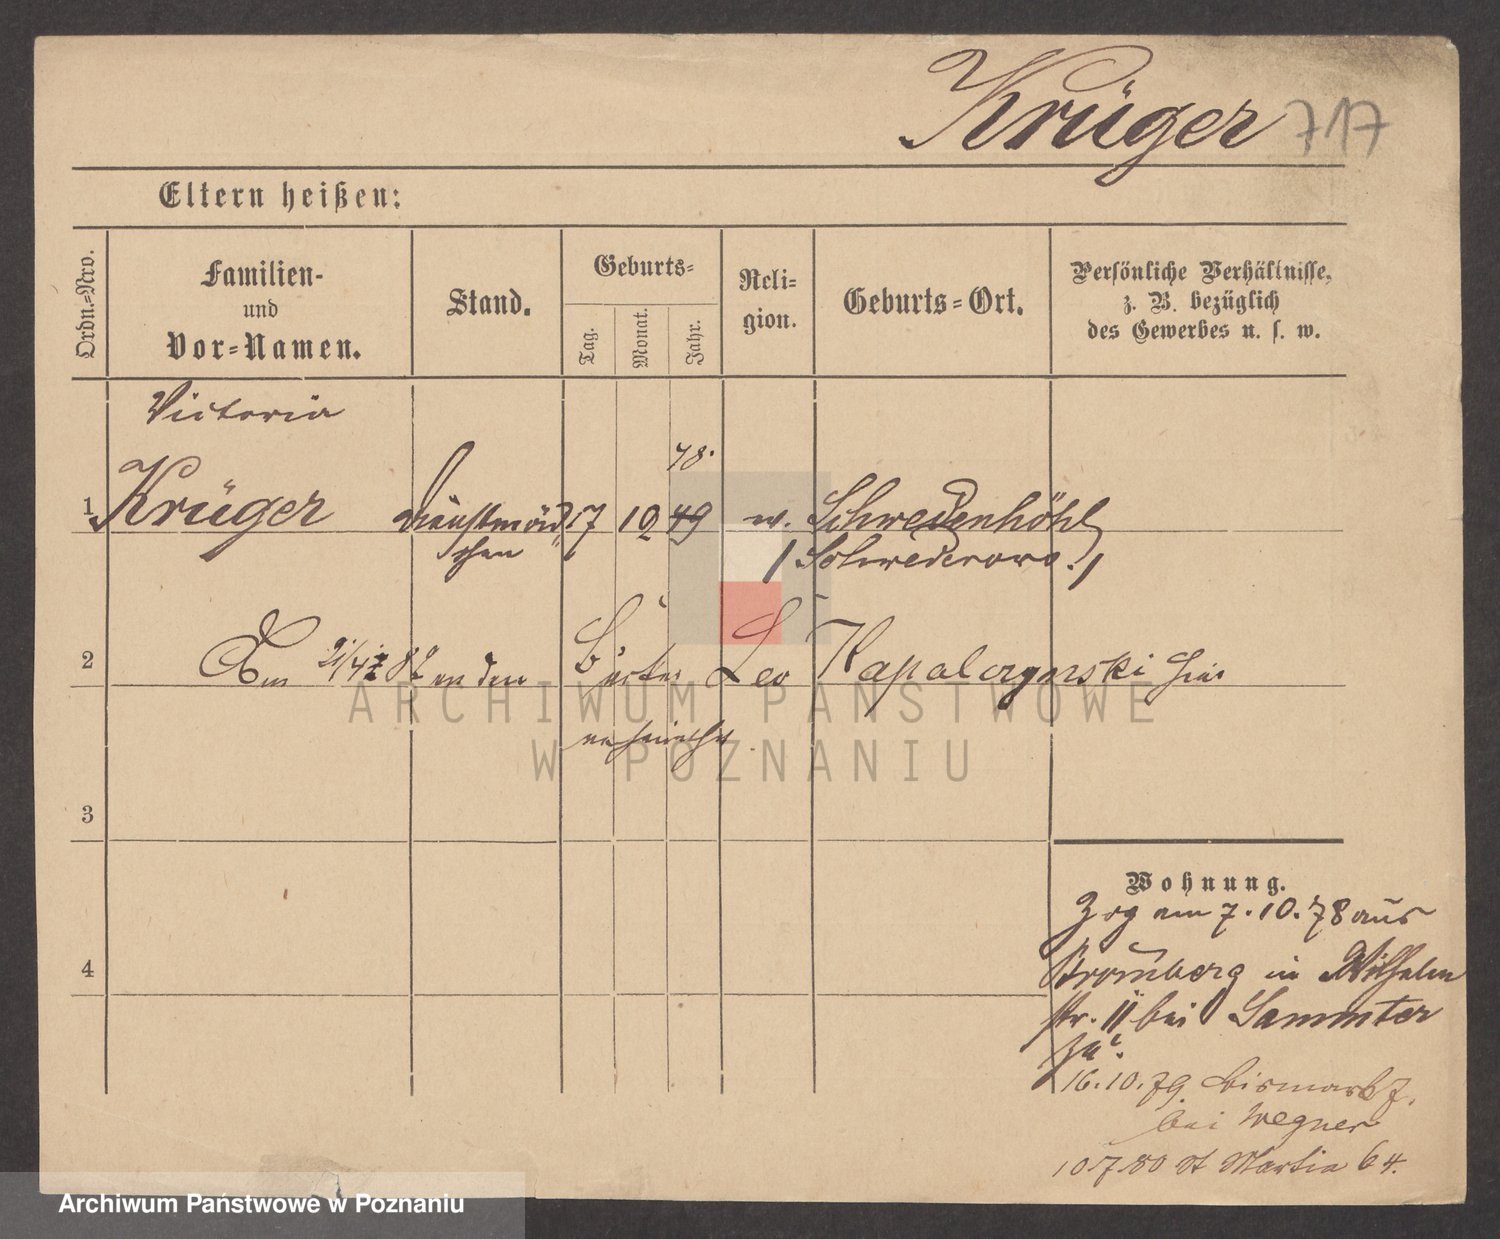 Krüger 717
Eltern heißen:
Ordn.=Nro.
Familien-
und
Vor=Namen.
Stand.
Geburts=
Tag.
Monat.
Jahr.
Reli=
gion.
Geburts=Ort.
Persönliche Verhältnisse,
z. B. bezüglich
des Gewerbes u. s. w.
Victoria
78.
1 Krüger Dienstmäd 17 10 49 Schwedenhöhe
chen (Schwederowo.)
2 Am 82 an den Leo hier
verheirathet
3
Wohnung.
Zog am 7.10.78 aus
Bromberg in Wilhelm
4
str. 11 bei Sammter
zu.
16.10.79 Bismarck 7.
bei Wegner
10.7.80 St Martin 64.
ARCHIWUM PAŃSTWOWE
W POZNANIU
Archiwum Państwowe w Poznaniu